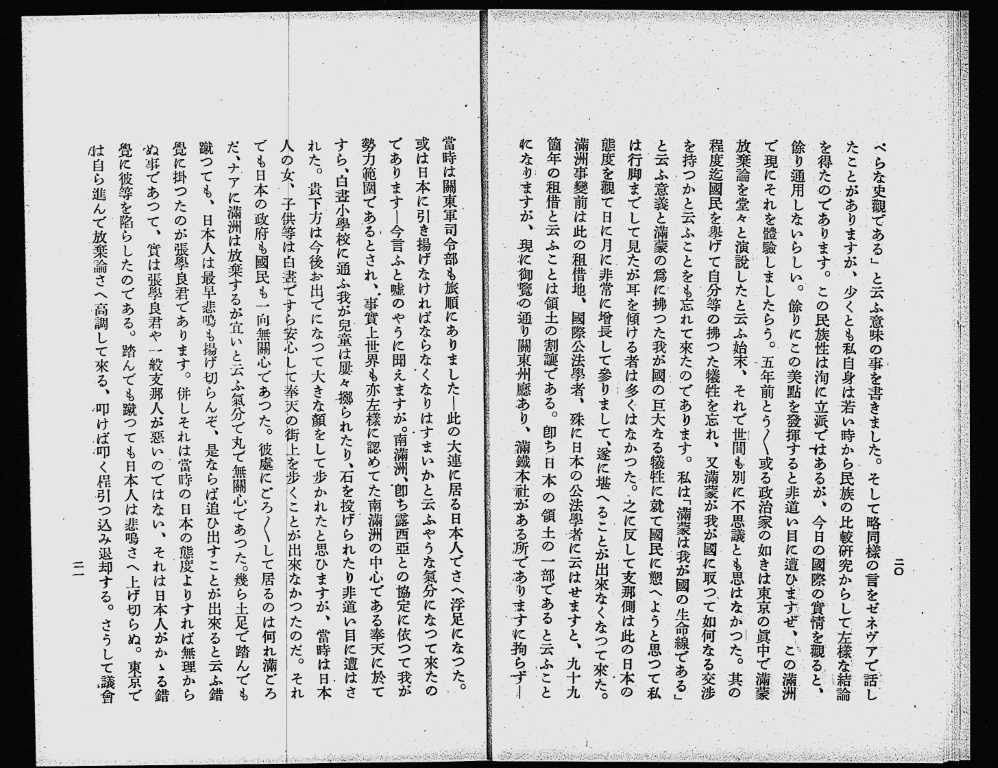 二〇
べらな史觀である」と云ふ意味の事を書きました。そして略同樣の言をゼネヴアで話し
たことがありますが、少くとも私自身は若い時から民族の比較硏究からして左樣な結論
を得たのであります。この民族性は洵に立派ではあるが、今日の國際の實情を觀ると、
餘り通用しないらしい。餘りにこの美點を發揮すると非道い目に遭ひますぜ、この滿洲
で現にそれを體驗しましたらう。五年前とう〱或る政治家の如きは東京の眞中で滿蒙
放棄論を堂々と演說したと云ふ始末、それで世間も別に不思議とも思はなかつた。其の
程度迄國民を擧げて自分等の拂つた犧牲を忘れ、又滿蒙が我が國に取つて如何なる交涉
を持つかと云ふことをも忘れて來たのであります。私は「滿蒙は我が國の生命線である」
と云ふ意義と滿蒙の爲に拂つた我が國の巨大なる犧牲に就て國民に愬へようと思つて私
は行脚までして見たが耳を傾ける者は多くはなかつた。之に反して支那側は此の日本の
態度を觀て日に月に非常に增長して參りまして、遂に堪へることが出來なくなつて來た。
滿洲事變前は此の租借地、國際公法學者、殊に日本の公法學者に云はせますと、九十九
箇年の租借と云ふことは領土の割讓である。卽ち日本の領土の一部であると云ふこと
になりますが、現に御覽の通り關東州廳あり、滿鐵本社がある所でありますに拘らず—
當時は關東軍司令部も旅順にありました—此の大連に居る日本人でさへ浮足になつた。
或は日本に引き揚げなければならなくなりはすまいかと云ふやうな氣分になつて來たの
であります—今言ふと噓のやうに聞えますが。南滿洲、卽ち露西亞との協定に依つて我が
勢力範圍であるとされ、事實上世界も亦左樣に認めてた南滿洲の中心である奉天に於て
すら、白晝小學校に通ふ我が兒童は屢々擲られたり、石を投げられたり非道い目に遭はさ
れた。貴下方は今後お出でになつて大きな顏をして步かれたと思ひますが、當時は日本
人の女、子供等は白晝ですら安心して奉天の街上を步くことが出來なかつたのだ。それ
でも日本の政府も國民も一向無關心であつた。彼處にごろ〱して居るのは何れ滿ごろ
だ、ナアに滿洲は放棄するが宜いと云ふ氣分で丸で無關心であつた。幾ら土足で踏んでも
蹴つても、日本人は最早悲鳴も揚げ切らんぞ、是ならば追ひ出すことが出來ると云ふ錯
覺に掛つたのが張學良君であります。併しそれは當時の日本の態度よりすれば無理から
ぬ事であつて、實は張學良君や一般支那人が惡いのではない、それは日本人がかゝる錯
覺に彼等を陷らしたのである。踏んでも蹴つても日本人は悲鳴さへ上げ切らぬ。東京で
は自ら進んで放棄論さへ高調して來る、叩けば叩く程引つ込み退却する。さうして議會
二一